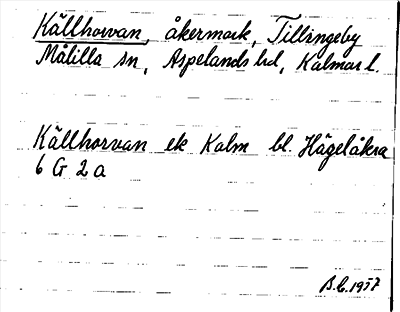 Källhorvan, åkermark, Tillingeby
Målilla sn, Aspelands hd, Kalmar l.
Källhorvan ek Kalm bl. Hägelåkra
6 G 2 a
B.C. 1957